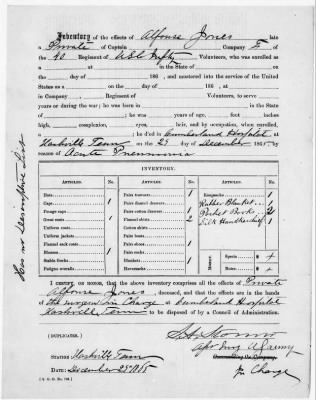 Inventory of the effects of Alfonso Jones, late
a Private of Captain Company E of
the 40 Regiment of USC Infty Volunteers, who was enrolled as
a at in the State of on
the day of 186 , and mustered into the service of the United
States as a on the day of 186 , at
in Company , Regiment of Volunteers, to serve
years or during the war; he was born in in the State
of ; he was years of age, foot
inches high, complexion, eyes, hair, and by occupation, when enrolled,
a ; he died in Cumberland Hospital at
Nashville Tenn on the 25 day of December 1865 by
reason of Acute Pneumonia
Has no Descriptive List
INVENTORY.
ARTICLES. No. ARTICLES. No. ARTICLES. No.
Hats Pairs trowsers, 1 Knapsacks 1
Caps 1 Pairs flannel drawers, Rubber Blanket 1
Forage caps Pairs cotton drawers, Pocket Book 2
Great coats 1 Flannel shirts 2 Silk Handkerchief 1
Uniform coats Cotton shirts
Uniform jackets Pairs boots
Flannel sack coats Pairs shoes 1
Blouses 1 Pairs socks
Stable frocks Blankets 1 Money. Specie $
Fatigue overalls Haversacks 1 Notes $
I CERTIFY, ON HONOR, that the above inventory comprises all the effects of Private
Alfonso Jones, deceased, and that the effects are in the hands
of the Surgeon in Charge at Cumberland Hospital
Nashville, Tenn to be disposed of by a Council of Administration.
(DUPLICATES.)
Surg U S Army
Commanding the Company.
In Charge
STATION: Nashville Tenn
DATE: December 25th 1865